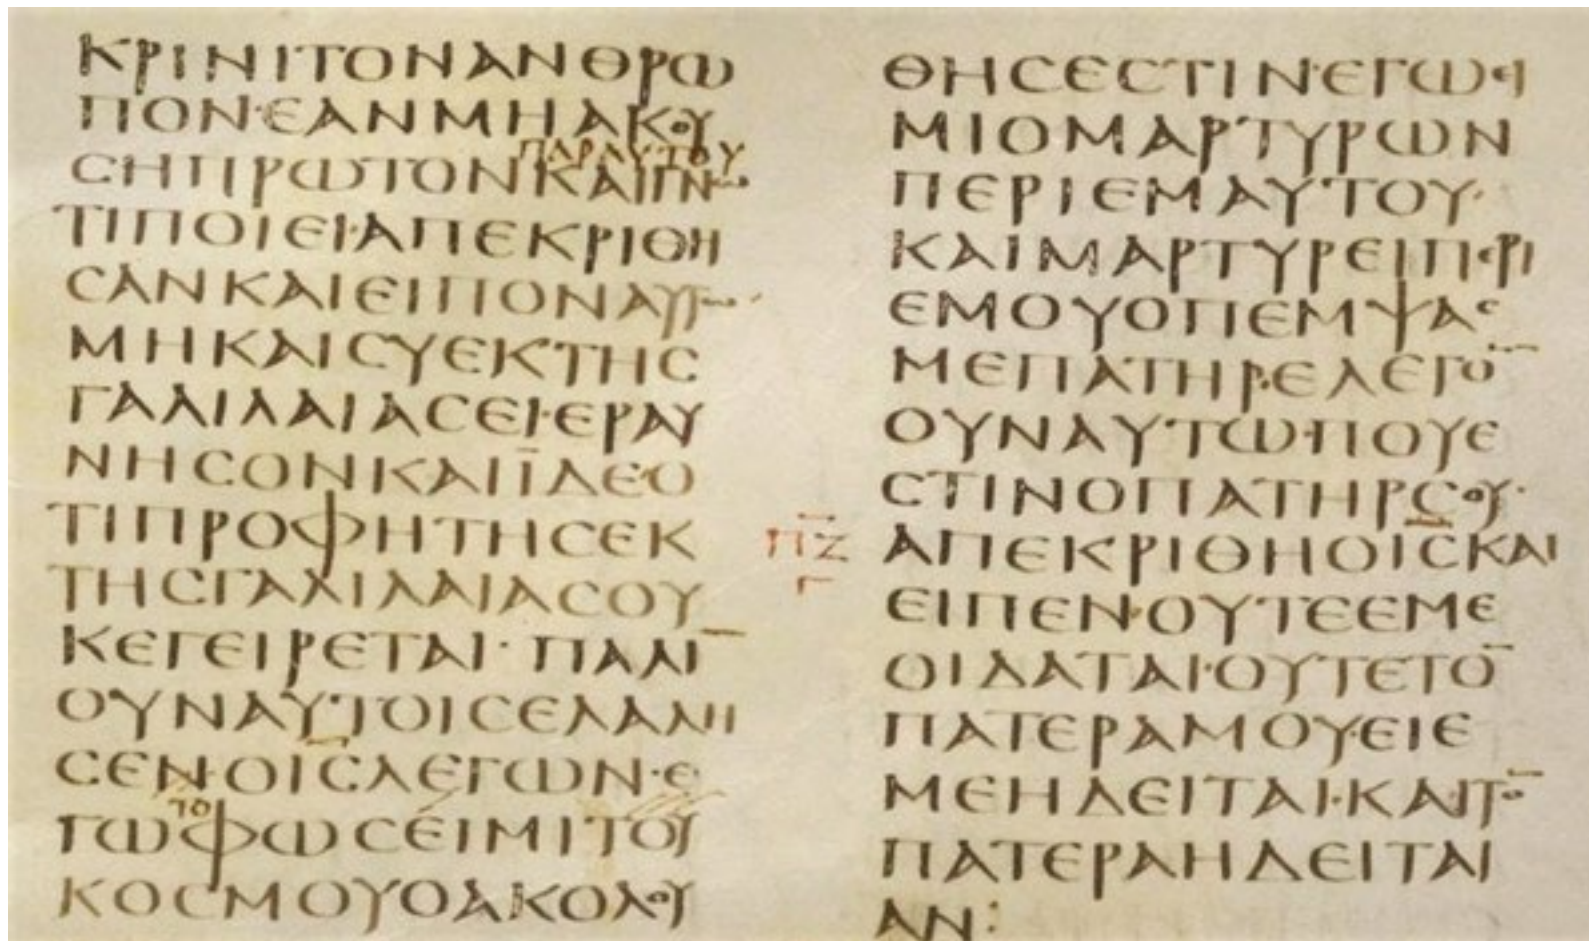 ΚΡΙΝΙΤΟΝΑΝΘΡΩ
ΠΟΝ·ΕΑΝΜΗΑΚΟΥ
ΠΑΡΑΥΤΟΥ
ϹΗΠΡΩΤΟΝΚΑΙΓΝΩ
ΤΙΠΟΙΕΙ·ΑΠΕΚΡΙΘΗ
ϹΑΝΚΑΙΕΙΠΟΝΑΥΤΩ·
ΜΗΚΑΙϹΥΕΚΤΗϹ
ΓΑΛΙΛΑΙΑϹΕΙ·ΕΡΑΥ
ΝΗϹΟΝΚΑΙΪΔΕΟ
ΤΙΠΡΟΦΗΤΗϹΕΚ
ΤΗϹΓΑΛΙΛΑΙΑϹΟΥ
ΚΕΓΕΙΡΕΤΑΙ· ΠΑΛΙ̅
ΟΥΝΑΥΤΟΙϹΕΛΑΛΗ
ϹΕΝ·ΟΙ̅Ϲ̅ΛΕΓΩΝ·Ε
ΤΟ
ΓΩΦΩϹΕΙΜΙΤΟΥ
ΚΟϹΜΟΥΟΑΚΟΛΟΥ
ΘΗϹΕϹΤΙΝ·ΕΓΩΕΙ
ΜΙΟΜΑΡΤΥΡΩΝ
ΠΕΡΙΕΜΑΥΤΟΥ·
ΚΑΙΜΑΡΤΥΡΕΙΠΕΡΙ
ΕΜΟΥΟΠΕΜΨΑϹ
ΜΕΠΑΤΗΡ·ΕΛΕΓΟ̅
ΟΥΝΑΥΤΩ·ΠΟΥΕ
ϹΤΙΝΟΠΑΤΗΡϹΟΥ·
Π̅Ζ̅
Γ
ΑΠΕΚΡΙΘΗΟΙ̅Ϲ̅ΚΑΙ
ΕΙΠΕΝ·ΟΥΤΕΕΜΕ
ΟΙΔΑΤΑΙ·ΟΥΤΕΤΟ̅
ΠΑΤΕΡΑΜΟΥ·ΕΙΕ
ΜΕΗΔΕΙΤΑΙ·ΚΑΙΤΟ̅
ΠΑΤΕΡΑΗΔΕΙΤΑΙ
ΑΝ: